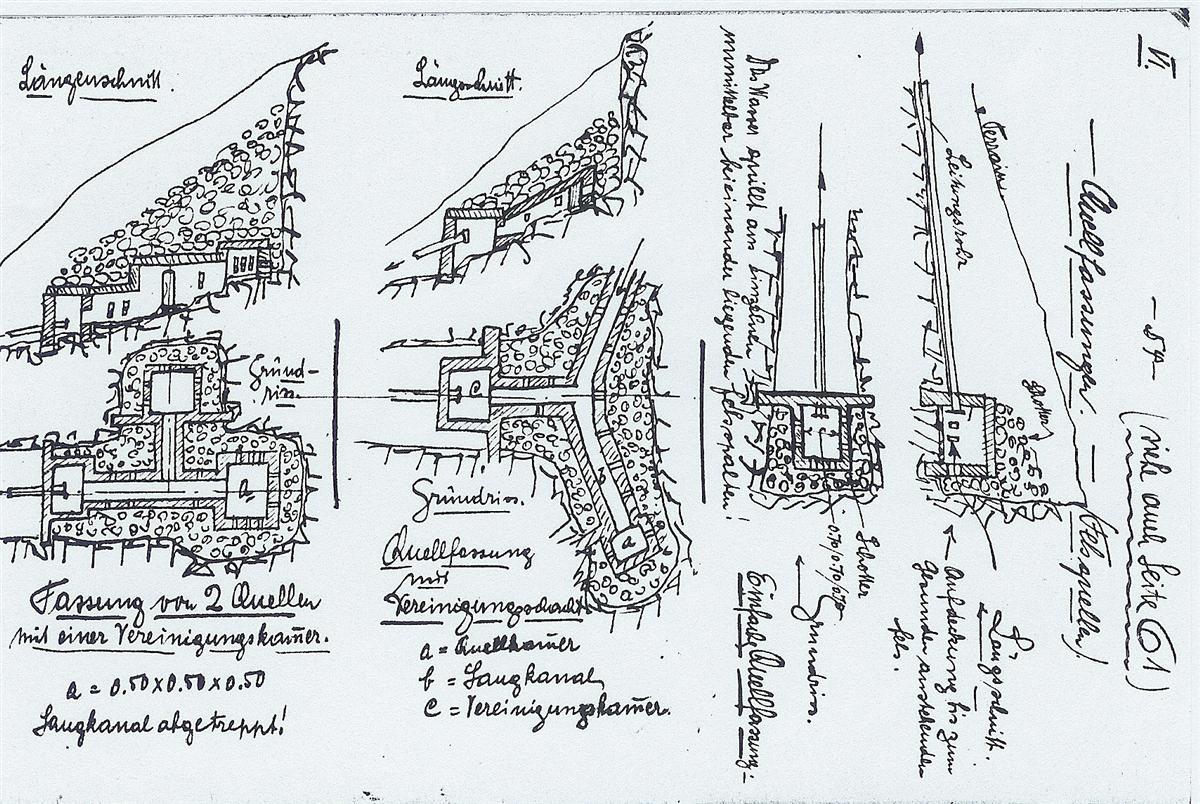 VI.
— 54 —
(siehe auch Seite 61)
— Quellfassungen. —
(Felsquellen)
Terrain
Leitungsrohr
Schotter
Längsschnitt.
Aufdeckung bis zum
gesunden anstehenden
Fels.
Schotter
0.70/0.70/0.70
Grundriss.
Einfache Quellfassung.
Das Wasser quillt aus einzelnen
unmittelbar beieinander liegenden Felsspalten!
Längsschnitt.
c
b
a
Grundriss.
Quellfassung
mit
Vereinigungsschacht
a = Quellkam̄er
b = Saugkanal
c = Vereinigungskam̄er.
Längenschnitt.
Grund-
riss.
Fassung von 2 Quellen
mit einer Vereinigungskam̄er.
a = 0.50 x 0.50 x 0.50
Saugkanal abgetreppt!